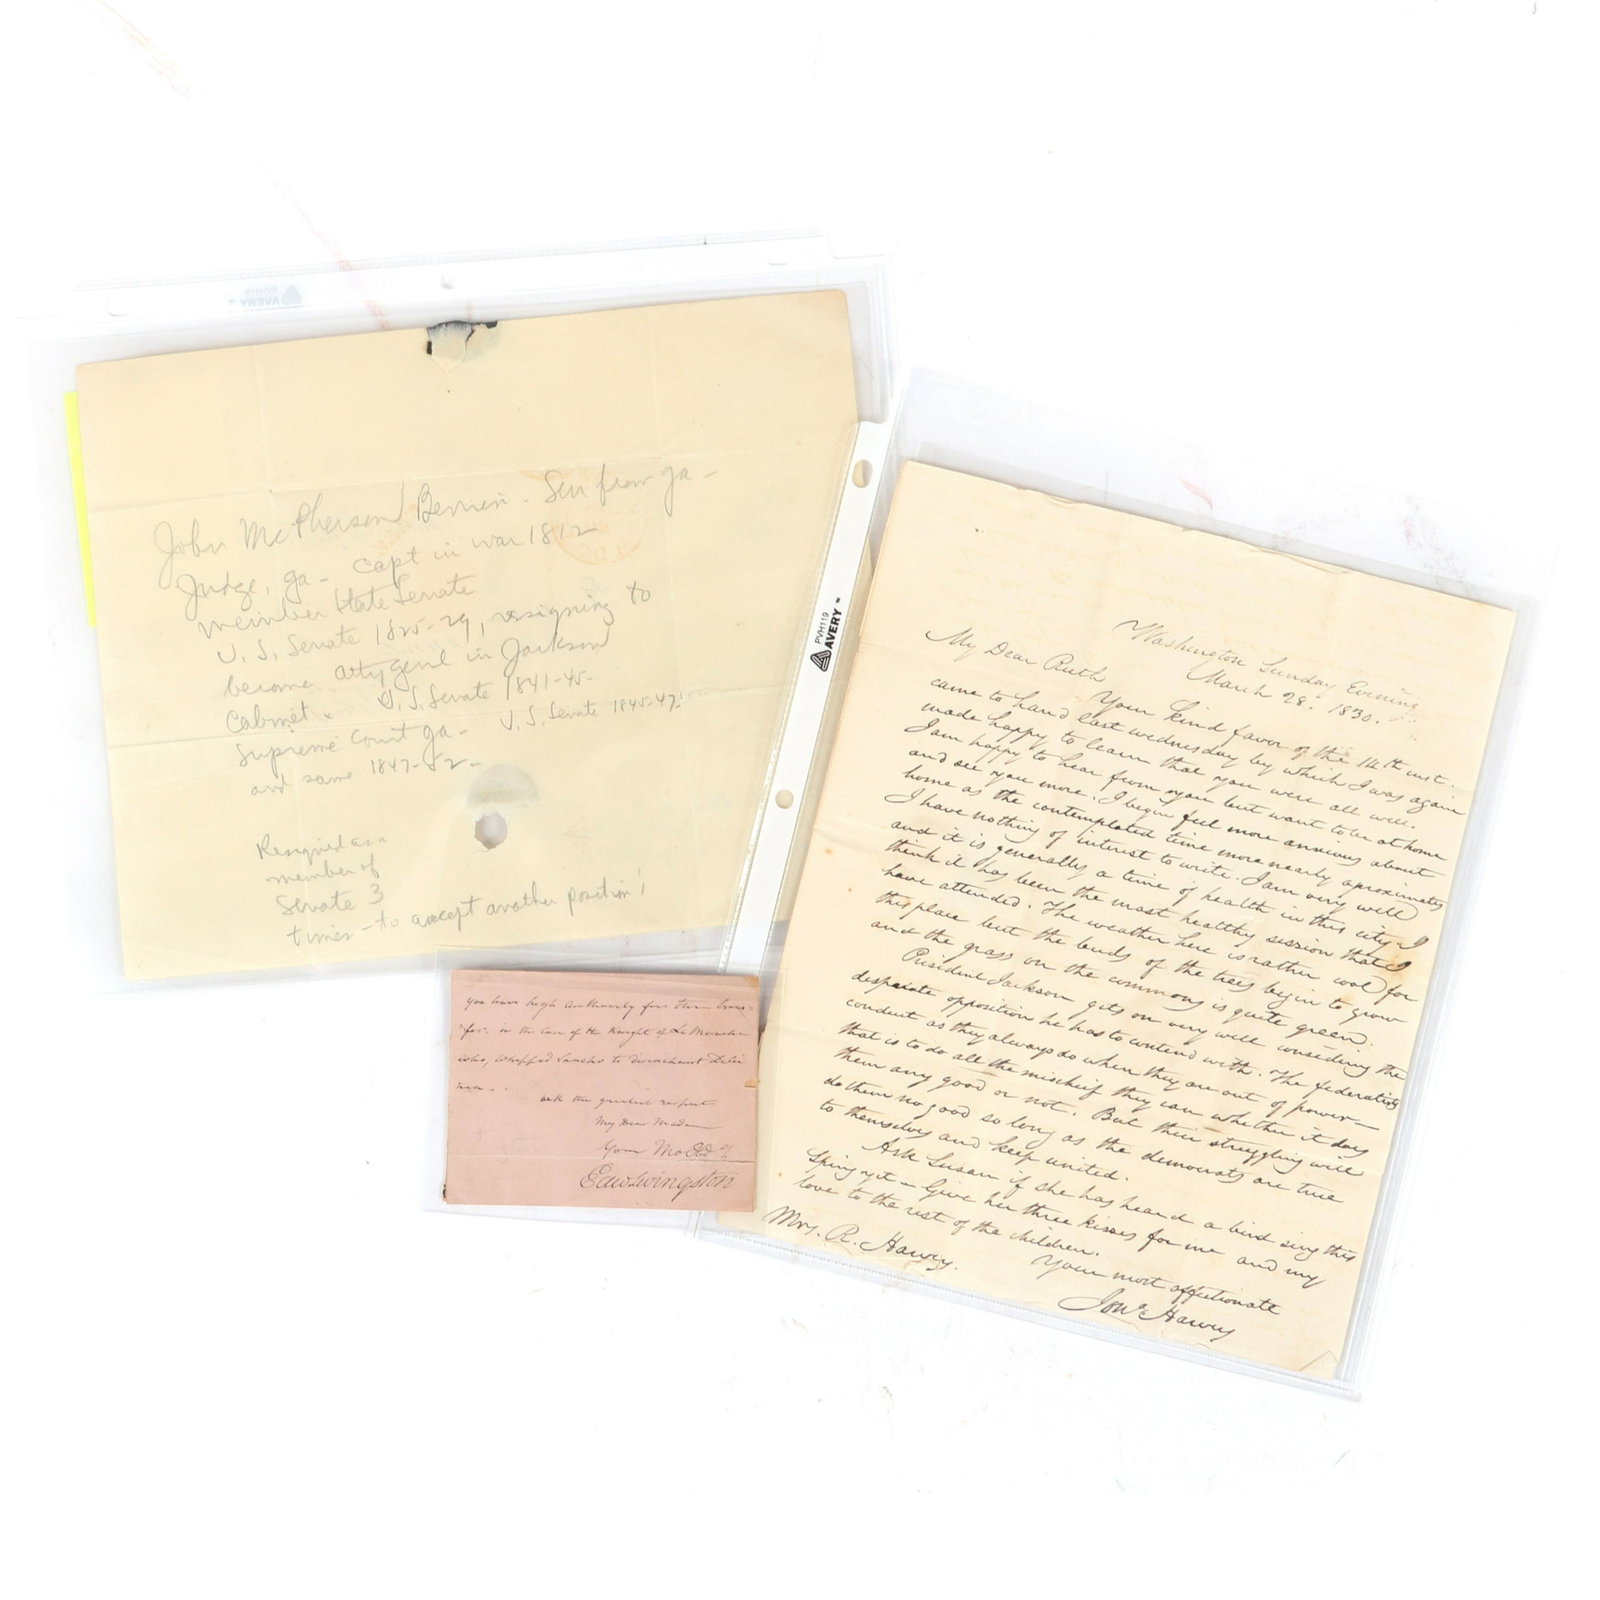 John McPherson Berrien - Sen from ga -
Judge, ga - capt in war 1812
member State Senate
U.S. Senate 1825-29, resigning to
become atty genl in Jackson
Cabinet. U.S. Senate 1841-45-
Supreme Court ga - U.S. Senate 1845-47
and same 1847-52-
Resigned as a
member of
Senate 3
times - to accept another position!
PVH119
AVERY
you have high authority for
for. in the case of the Knight of La Mancha
who, whipped Sancho to disenchant
with the greatest respect
My Dear Madam
Your Mo Obd
Edw Livingston
Washington Sunday Evening
March 28. 1830.
My Dear Ruth
Your kind favor of the 14th inst.
came to hand last wednesday by which I was again
made happy to learn that you were all well.
I am happy to hear from you but want to be at home
and see you more. I begin feel more anxious about
home as the contemplated time more nearly aproximates
I have nothing of interest to write. I am very well
and it is generally a time of health in this city. I
think it has been the most healthy session that I
have attended. The weather here is rather cool for
this place but the buds of the trees begin to grow
and the grass on the commons is quite green.
President Jackson gits on very well considering the
desperate opposition he has to contend with. The federalists
conduct as they always do when they are out of power—
that is to do all the mischief they can whether it does
them any good or not. But their struggling will
do them no good so long as the democrats are true
to themselves and keep united.
Ask Susan if she has heard a bird sing this
Spring yet - Give her three kisses for me and my
love to the rest of the children.
Your most affectionate
Mrs. R. Harvey.
Jona Harvey